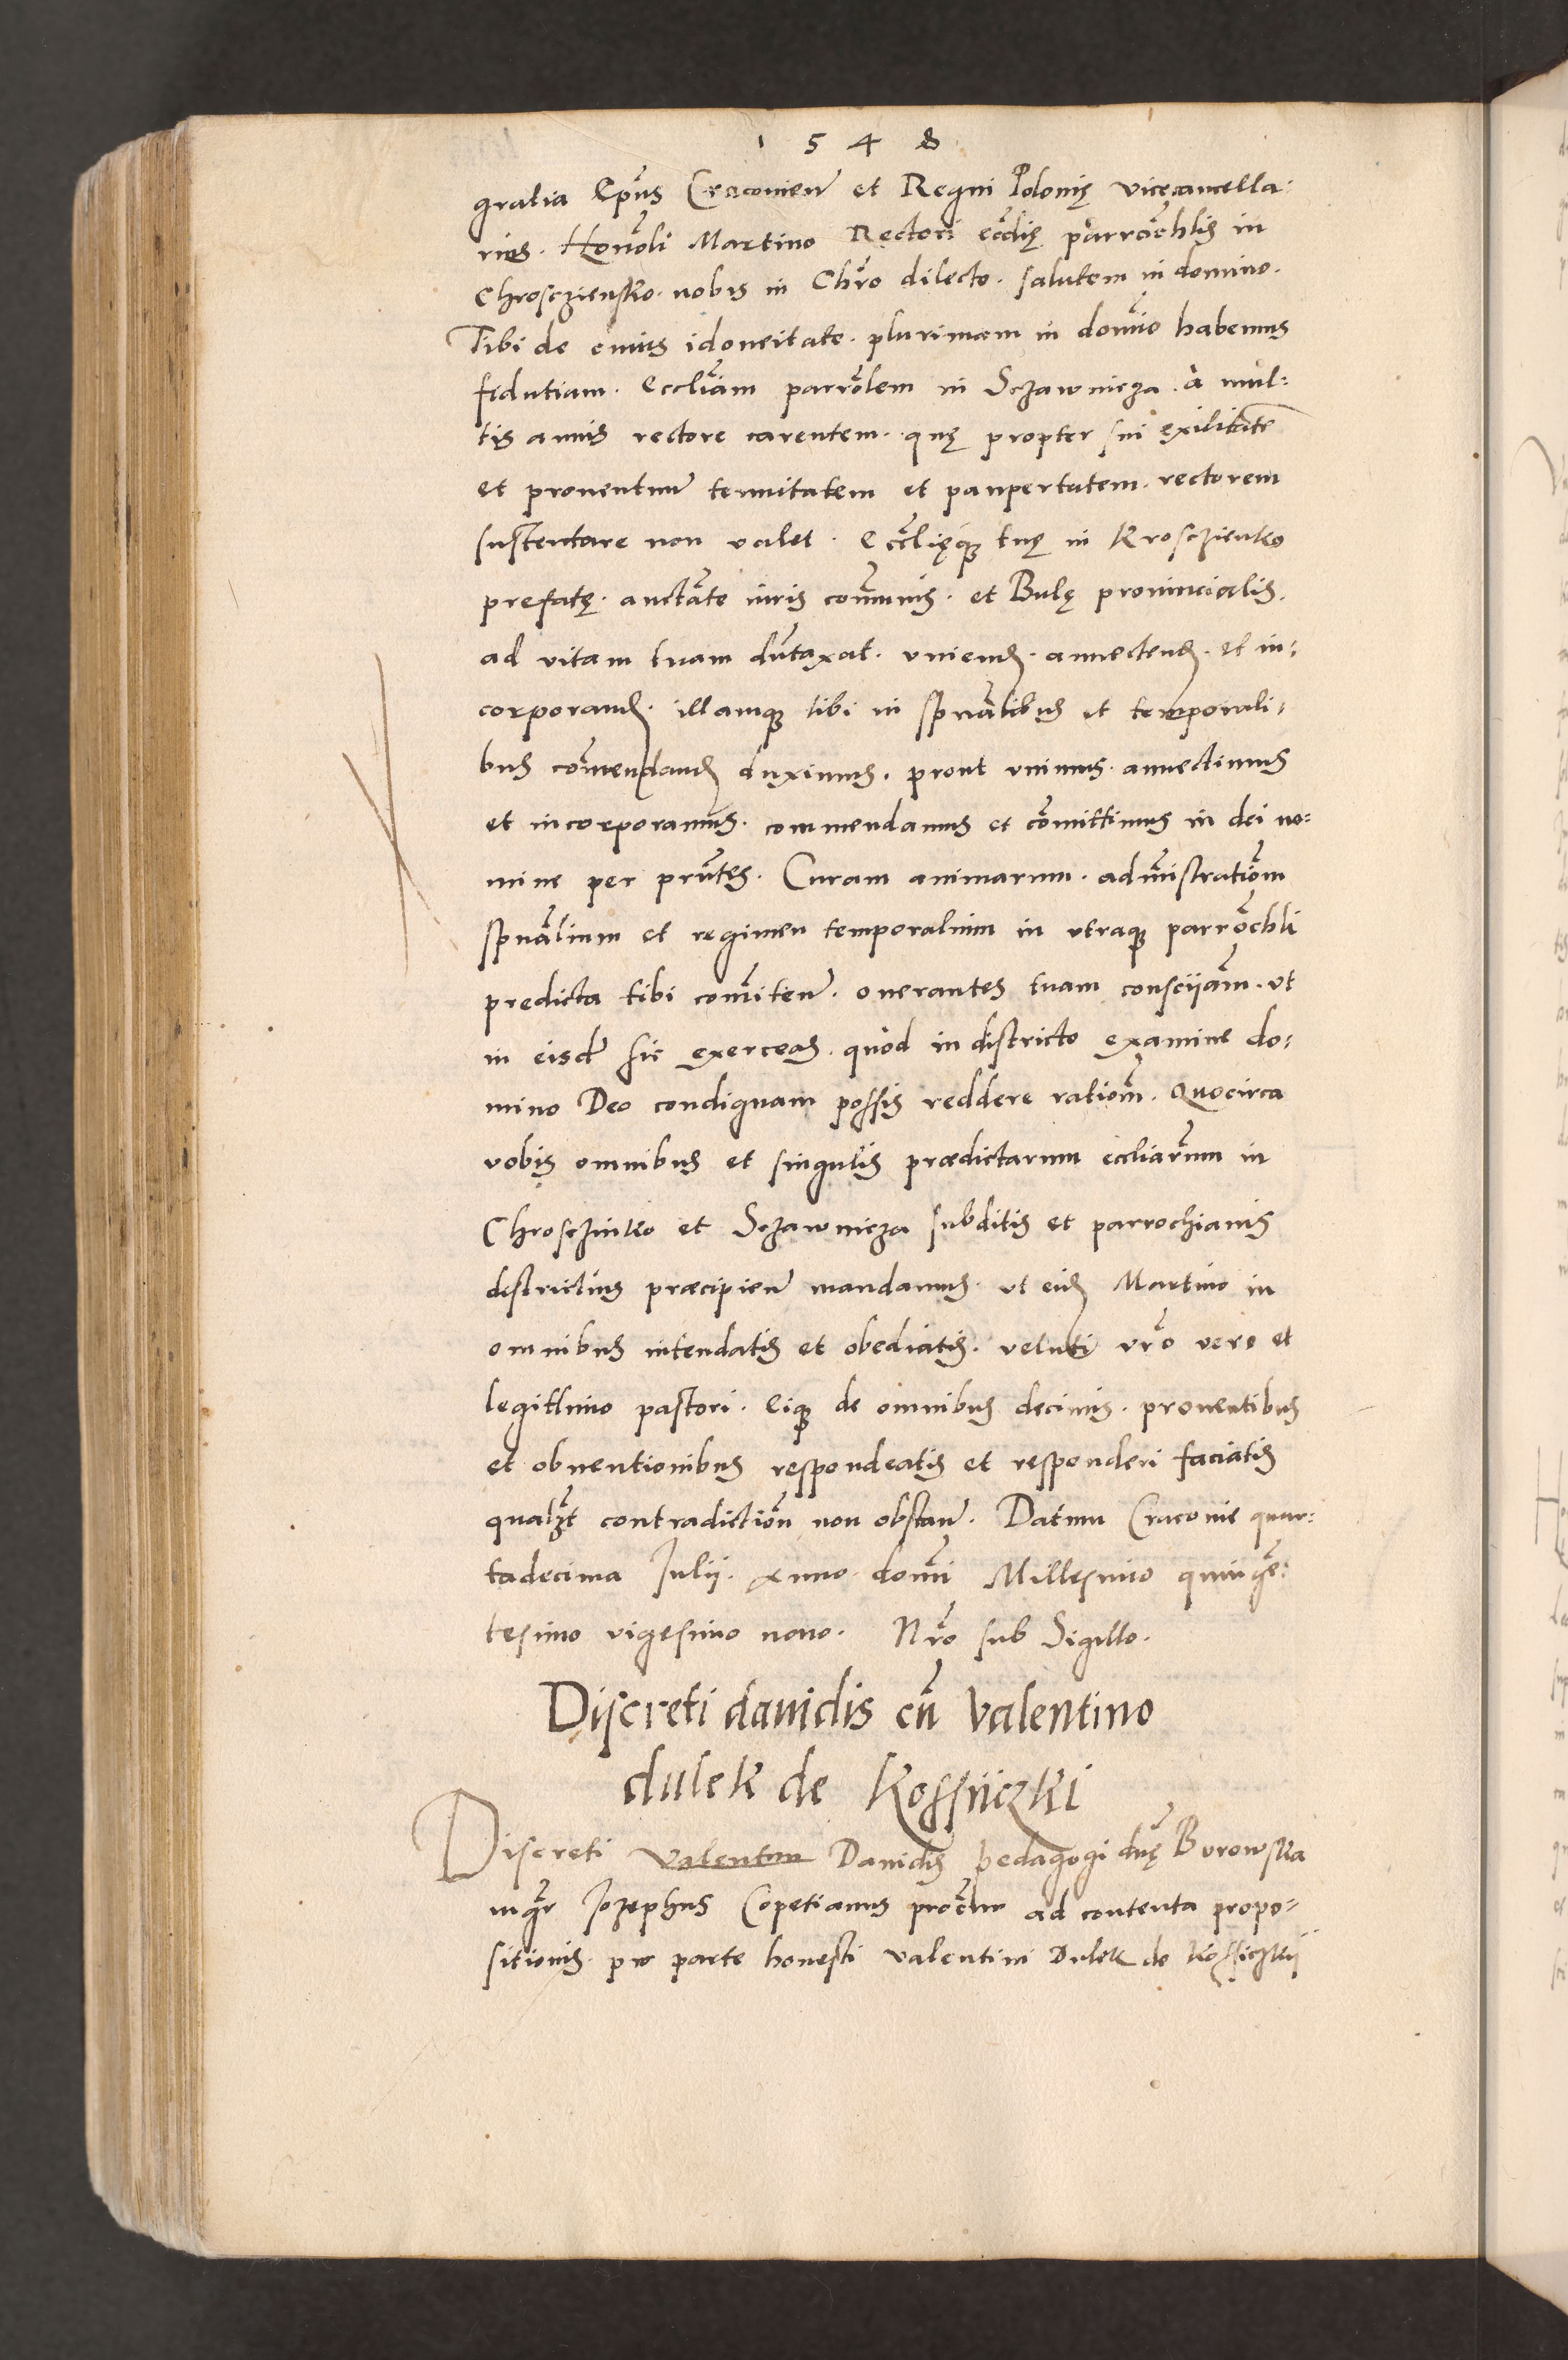 1548
gratia Ep̃us Cracovien̄ et Regni Polonię vicęcancella:
rius. Hono͂li Martino Rectori eccl̃ię parroch̃lis in
Chrosczienko. nobis in Chr̃o dilecto. salutem in domino.
Tibi de cuius idoneitate. plurimam in domĩo habemus
fidutiam. Eccl̃iam parro͂lem in Sczawnicza. à mul:
tis annis rectore carentem. quę propter sui exilitatē
et proventuū tenuitatem et paupertatem. rectorem
sustentare non valet. Eccl̃ięq; tuę in Krosczienko
prefatę. auct̃ate iuris cõmunis. et Bulę provincialis.
ad vitam tuam dũtaxat. uniend. annectend. et in:
corporand. illamq; tibi in sp̃ualibus et temporali:
bus cõmendand duximus. prout unimus. annectimus
et incorporamus. commendamus et cõmittimus in dei no:
mine per pñtes. Curam animarum. administratiõm
sp̃ualium et regimen temporalium in utraq; parrõchli
predicta tibi cõmiten̄. onerantes tuam consciẽtiam. ut
in eisd̄ sic exerceas. quod in districto examine do:
mino Deo condignam possis reddere ratiõm. Quocirca
vobis omnibus et singulis prædictarum eccliarum in
Chrosczinko et Sczawnicza subditis et parrochianis
destrictius præcipien̄ mandamus. ut eid Martino in
omnibus intendatis et obediatis. veluti vr̃o vero et
legittimo pastori. Eiq; de omnibus decimis. proventibus
et obventionibus respondeatis et responderi faciatis
qualz̃t contradictiõn non obstan̄. Datum Cracovie quar:
tadecima Julii. Anno domĩ Millesimo quingẽ:
tesimo vigesimo nono. Nr̃o sub Sigillo.
Discreti davidis cũ valentino
dulek de Kossiiczki
Discreti Valentin Davidis pedagogi dñę Borowska
mg̃r Jozephus Copetianus procur̃ ad contenta propo:
sitionis. pro parte honesti valentini Dulek de Kossiczkij